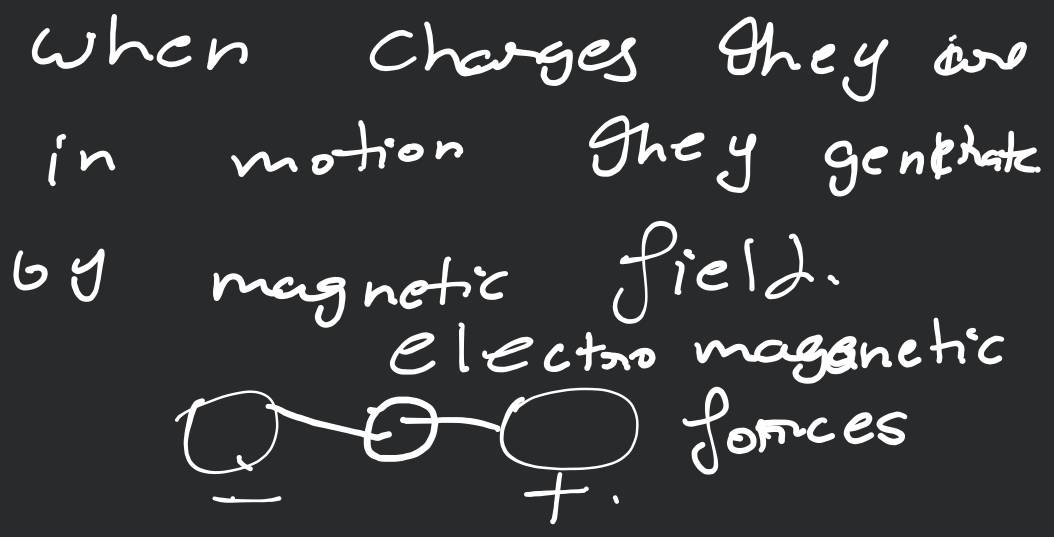 when charges they are
in motion they generate
by magnetic field.
electro magenetic
forces
− + .